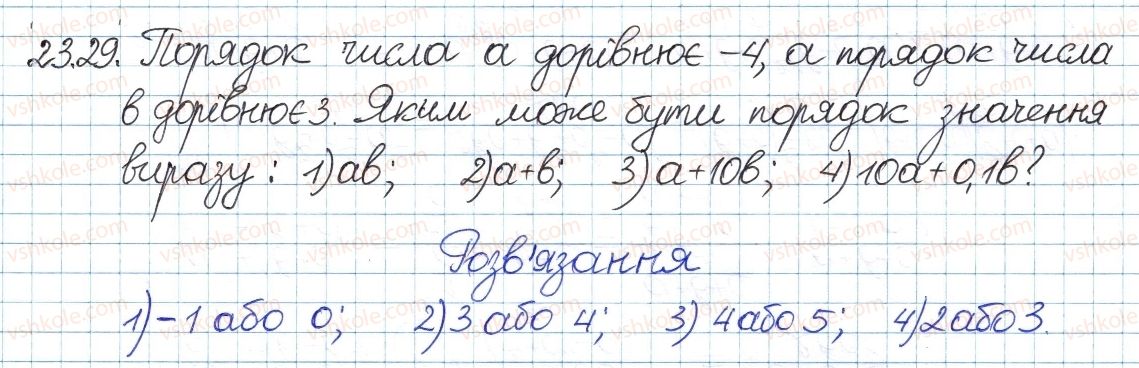 23.29. Порядок числа а дорівнює -4, а порядок числа
в дорівнює 3. Яким може бути порядок значення
виразу: 1) ав; 2) а+в; 3) а+10в; 4) 10а+0,1в?
Розв'язання
1) -1 або 0; 2) 3 або 4; 3) 4 або 5; 4) 2 або 3.